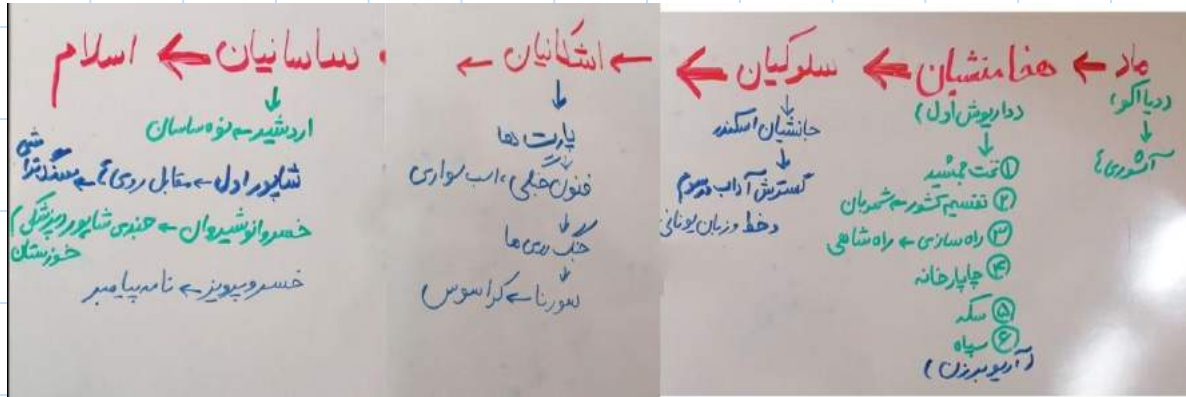 ماد ← هخامنشیان ← سلوکیان ← اشکانیان ← ساسانیان ← اسلام
(دیااکو)
↓
آشوری؟
(داریوش اول)
① تخت جمشید
② تقسیم کشور ← شهربان
③ راه سازی ← راه شاهی
④ چاپارخانه
⑤ سکه
⑥ سپاه
(آریوبرزن)
↓
جانشیان اسکندر
↓
گسترش آداب و رسوم
و خط و زبان یونانی
↓
پارت ها
↓
فنون جنگی، اسب سواری
↓
جنگ رومی ها
↓
سورنا ← کراسوس
↓
اردشیر ← نوه ساسان
شاپور اول ← مقابل رومی؟ ← سنگ تراشی
خسرو انوشیروان ← جندی شاپور (پزشکی)
خوزستان
خسرو پرویز ← نامه پیامبر